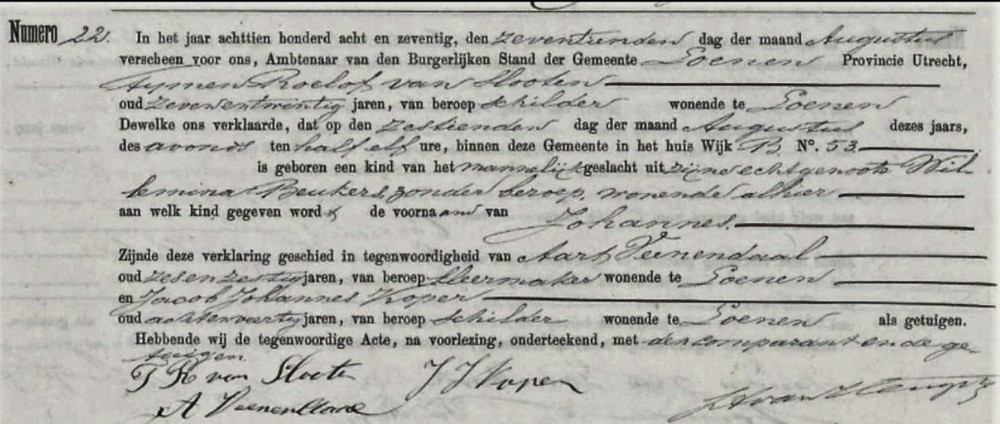 Numero 22. In het jaar achttien honderd acht en zeventig, den zeventienden dag der maand Augustus
verscheen voor ons, Ambtenaar van den Burgerlijken Stand der Gemeente Loenen Provincie Utrecht,
Tymen Roelof van Slooten
oud zevenentwintig jaren, van beroep schilder wonende te Loenen
Dewelke ons verklaarde, dat op den zestienden dag der maand Augustus dezes jaars,
des avonds ten half elf ure, binnen deze Gemeente in het huis Wijk B No. 53.
is geboren een kind van het mannelijk geslacht uit zijne echtgenoote Wil-
lemina Beukers, zonder beroep, wonende alhier
aan welk kind gegeven word is de voornaam van
Johannes.
Zijnde deze verklaring geschied in tegenwoordigheid van Aart Veenendaal
oud zesenzestig jaren, van beroep kleermaker wonende te Loenen
en Jacob Johannes Koper
oud achtenveertig jaren, van beroep schilder wonende te Loenen als getuigen.
Hebbende wij de tegenwoordige Acte, na voorlezing, onderteekend, met den comparant en de ge-
tuigen.
T R van Slooten J J Koper
A Veenendaal